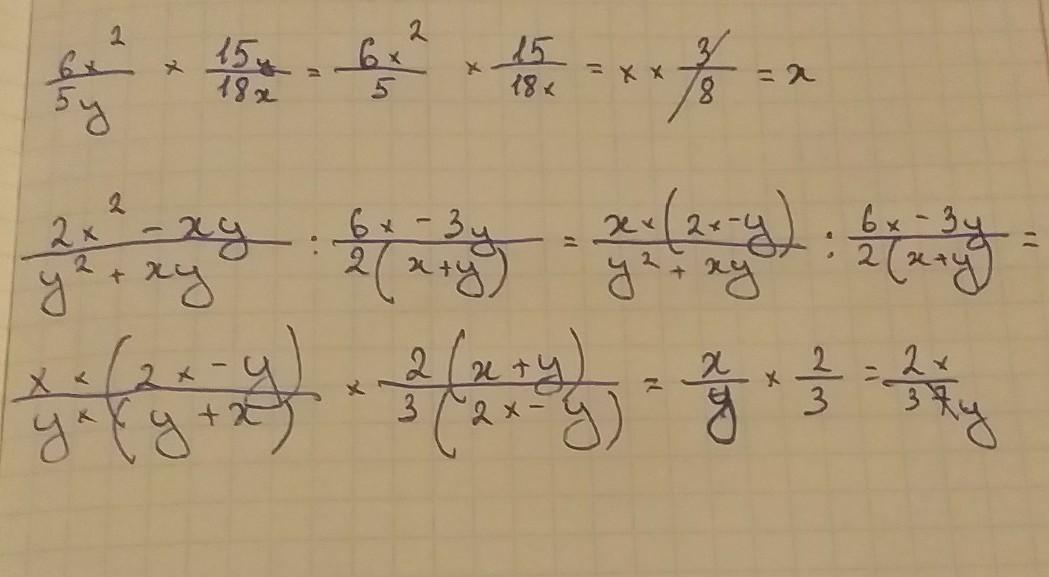 6x²/5y × 15y/18x = 6x²/5 × 15/18x = x × 3/8 = x
2x² - xy/y² + xy : 6x - 3y/2(x+y) = x×(2x-y)/y² + xy : 6x - 3y/2(x+y) =
x × (2x - y)/y×(y + x) × 2(x + y)/3(2x - y) = x/y × 2/3 = 2x/3y